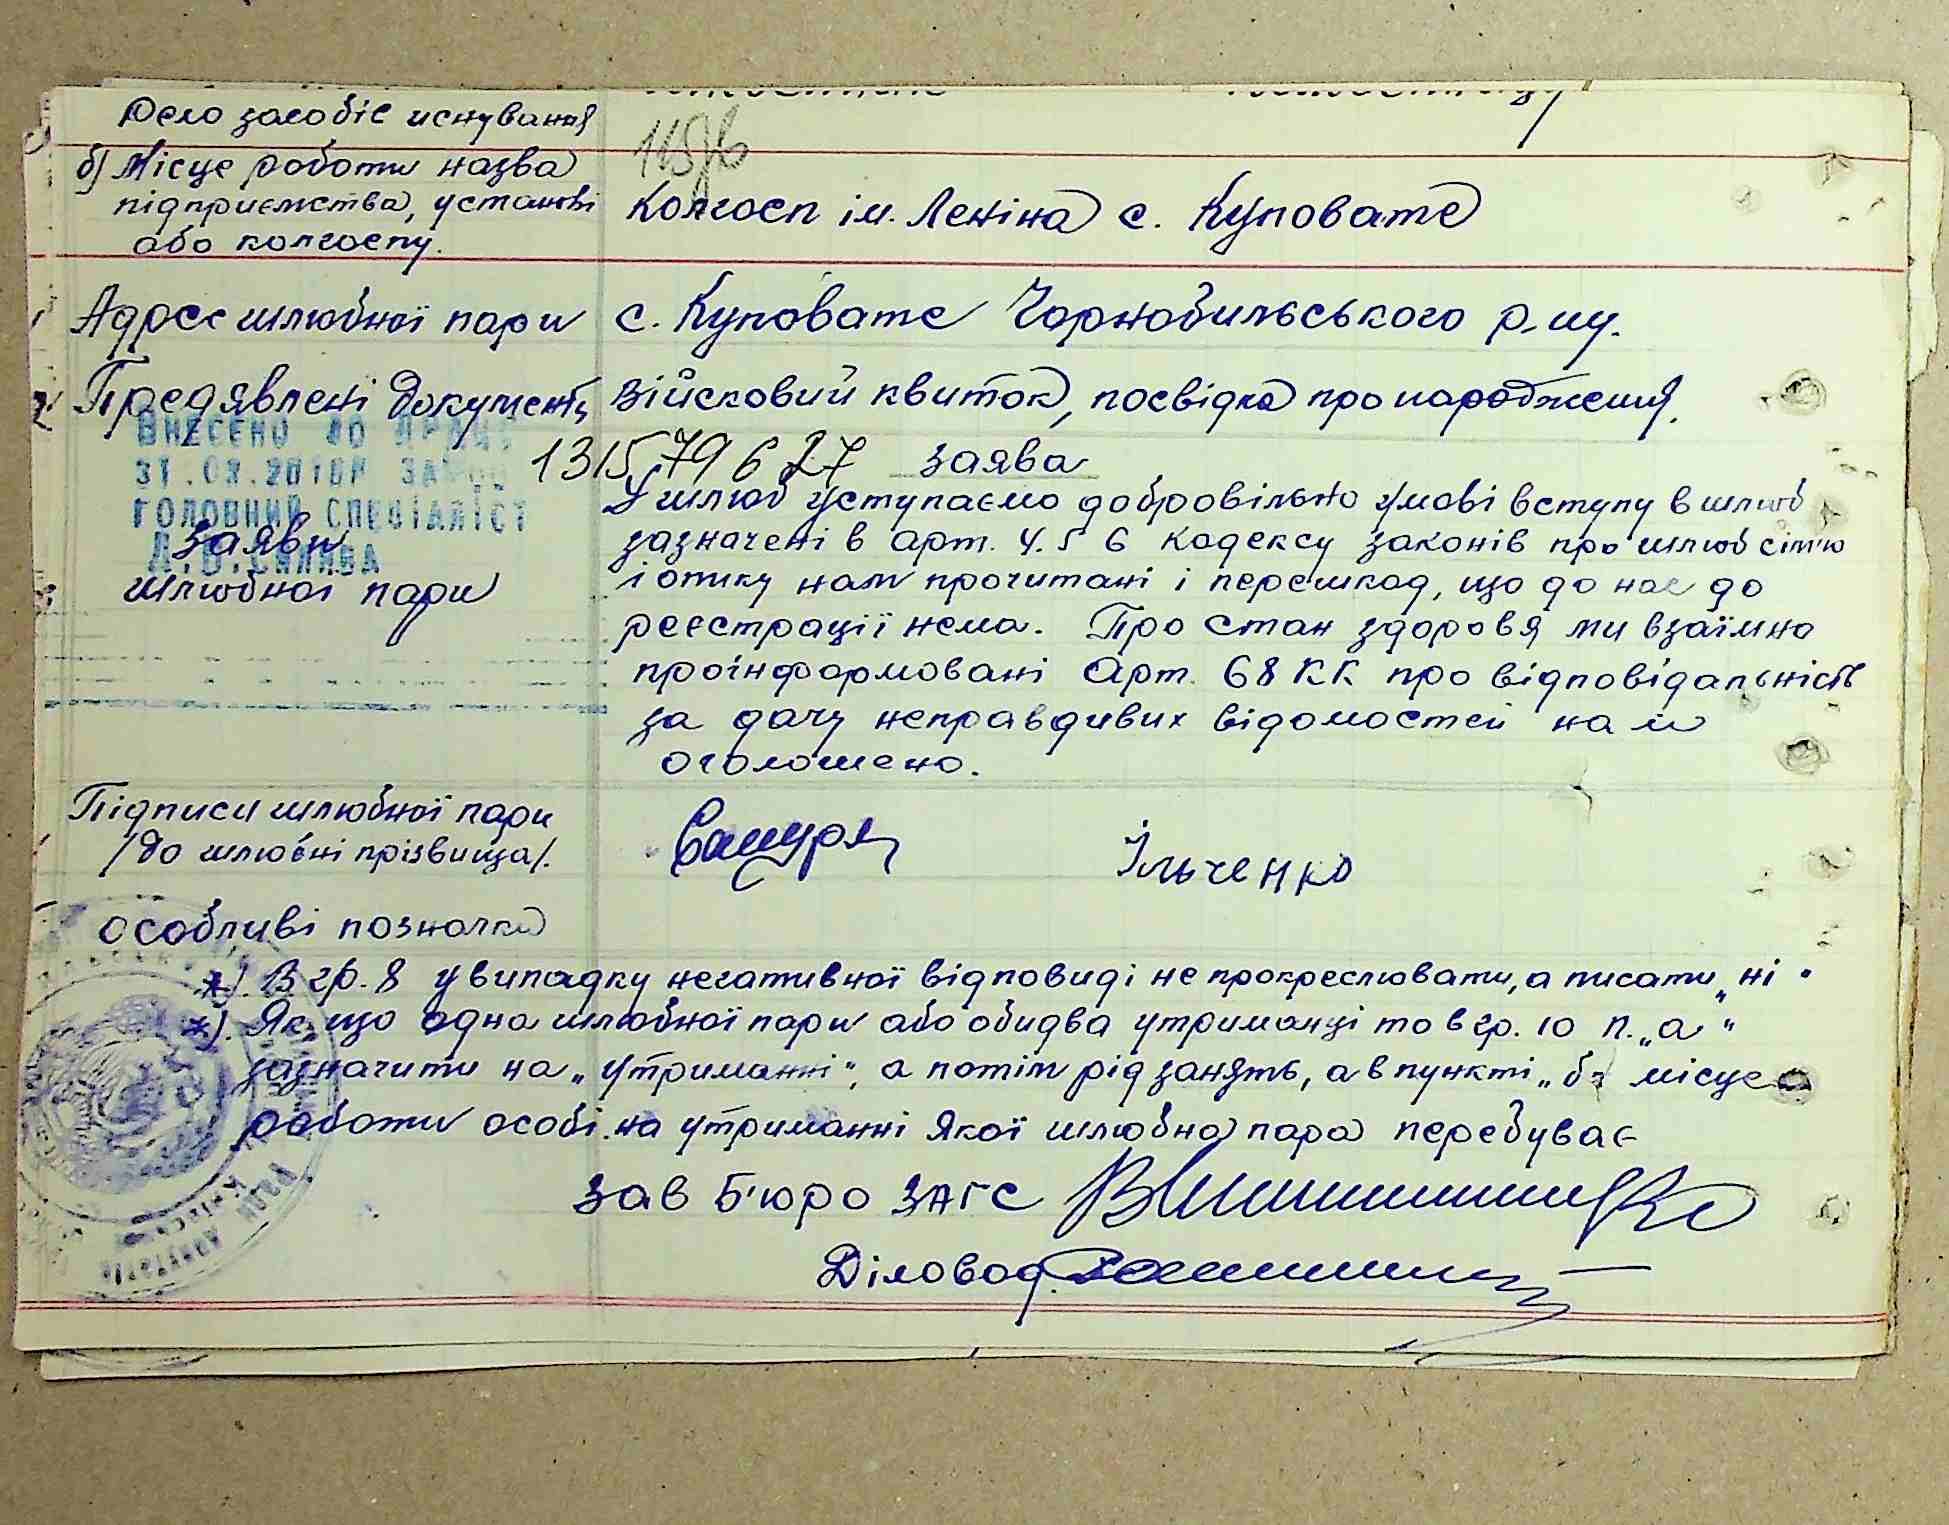 б) Місце роботи назва
підприємства, установи
або колгоспу.
Колгосп ім. Леніна с. Куповате
Адрес шлюбної пари с. Куповате Чорнобильського р-ну.
Предявлені документи військовий квиток, посвідка про народження.
ВНЕСЕНО ДО
ГОЛОВНИЙ СПЕЦІАЛІСТ
Заяви
шлюбної пари
заява
У шлюб уступаємо добровільно умові вступу в шлюб
зазначені в арт. 4.5 6 кодексу законів про шлюб сім'ю
і опіку нам прочитані і перешкод, що до нас до
реєстрації нема. Про стан здоровя ми взаїмно
проінформовані Арт. 68 КК про відповідальність
за дачу неправдивих відомостей нам
оголошено.
Підписи шлюбної пари
/до шлюбні прізвища/.
Ільченко
особливі позначки
*). В гр. 8 у випадку негативної відповиді не прокреслювати, а писати „ні"
*). Якщо одна шлюбної пари або обидва утриманці то в гр. 10 п. „а"
зазначити на „утриманні", а потім рід занять, а в пункті „б" місце
роботи особі на утриманні якої шлюбна пара перебуває
Зав Б'юро ЗАГС
Діловод